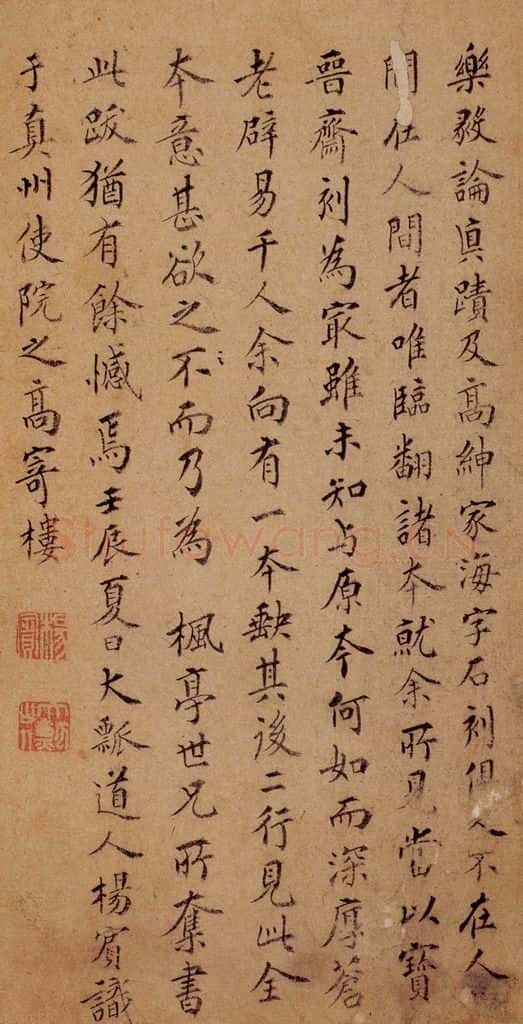 樂毅論真蹟及高紳家海字石刻俱久不在人
間在人間者唯臨翻諸本就余所見當以寶
晉齋刻為最雖未知与原本何如而深厚蒼
老辟易千人余向有一本缺其後二行見此全
本意甚欲之不而乃為 楓亭世兄所奪書
此跋猶有餘憾焉壬辰夏日大瓢道人楊賓識
于真州使院之高寄樓